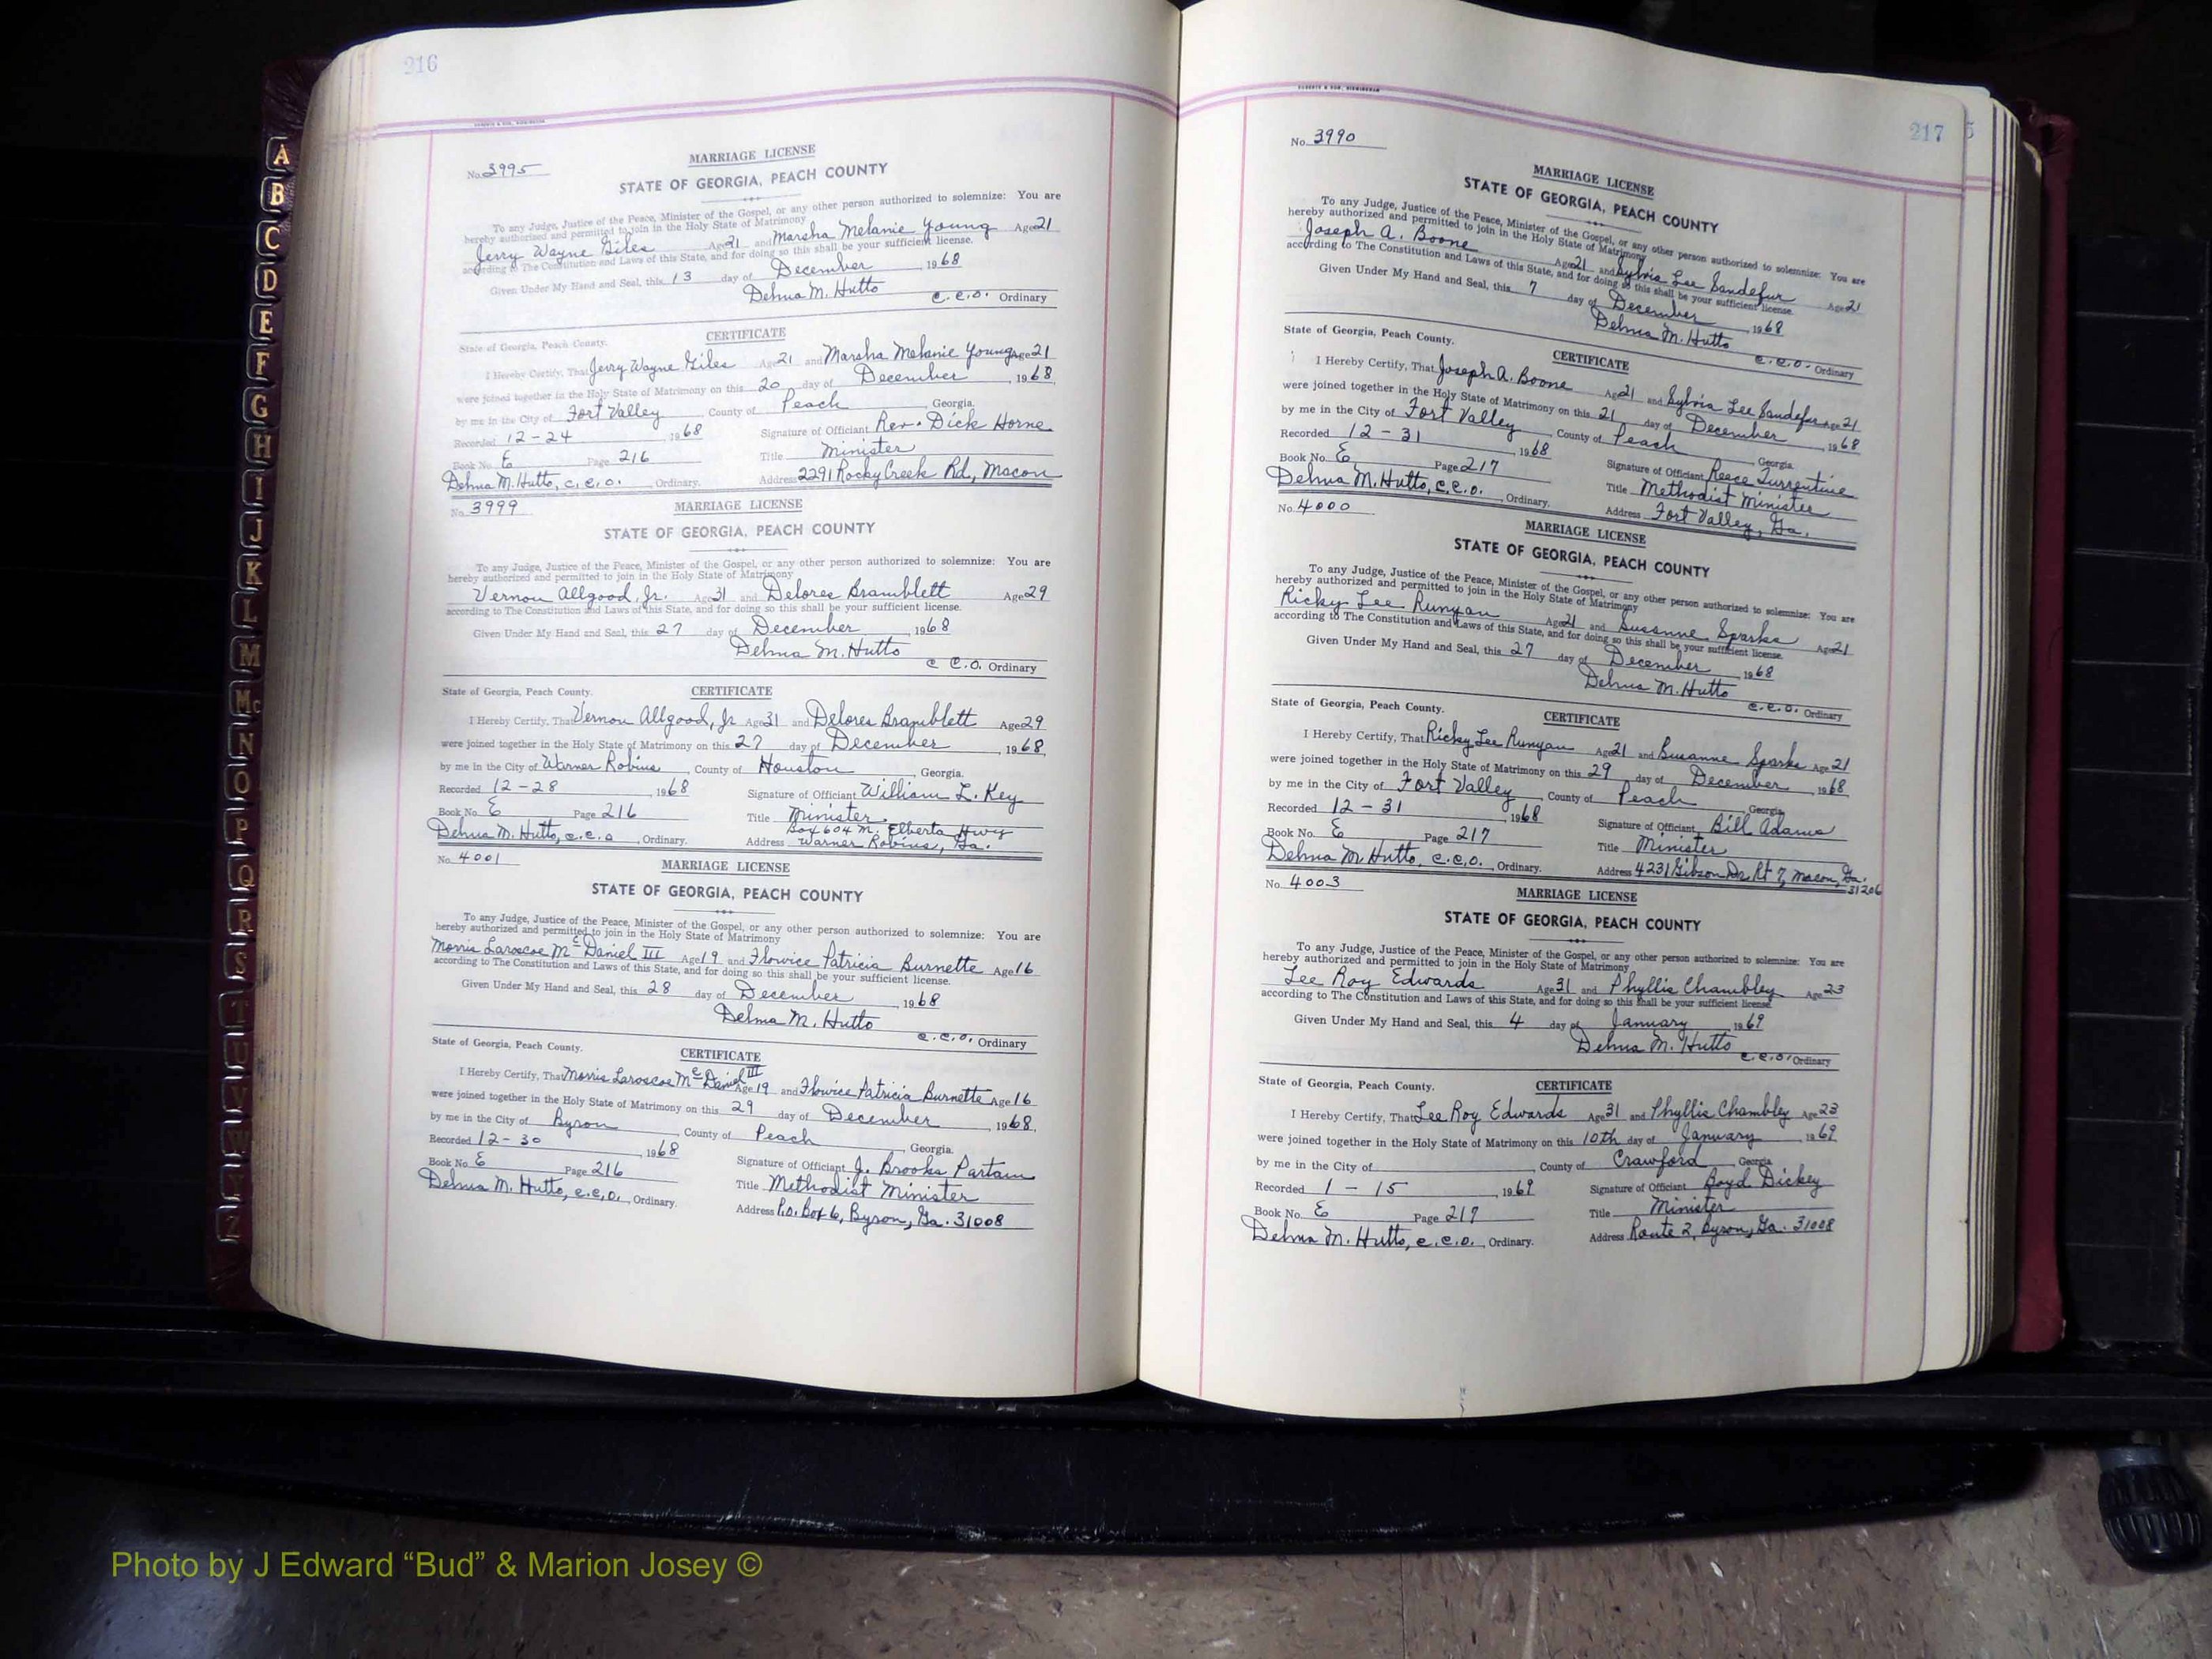 216
No. 3995
MARRIAGE LICENSE
STATE OF GEORGIA, PEACH COUNTY
To any Judge, Justice of the Peace, Minister of the Gospel, or any other person authorized to solemnize: You are
hereby authorized and permitted to join in the Holy State of Matrimony
Jerry Wayne Giles Age 21 and Marsha Melanie Young Age 21
according to The Constitution and Laws of this State, and for doing so this shall be your sufficient license.
Given Under My Hand and Seal, this 13 day of December 1968
Delma M. Hutto
C.C.O. Ordinary
CERTIFICATE
State of Georgia, Peach County.
I Hereby Certify, That Jerry Wayne Giles Age 21 and Marsha Melanie Young Age 21
were joined together in the Holy State of Matrimony on this 20 day of December, 1968,
by me in the City of Fort Valley County of Peach, Georgia.
Recorded 12-24, 1968 Signature of Officiant Rev. Dick Horne
Book No. E Page 216 Title Minister
Delma M. Hutto, C.C.O., Ordinary. Address 2291 Rocky Creek Rd, Macon
No. 3999
MARRIAGE LICENSE
STATE OF GEORGIA, PEACH COUNTY
To any Judge, Justice of the Peace, Minister of the Gospel, or any other person authorized to solemnize: You are
hereby authorized and permitted to join in the Holy State of Matrimony
Vernon Allgood, Jr. Age 31 and Delores Bramblett Age 29
according to The Constitution and Laws of this State, and for doing so this shall be your sufficient license.
Given Under My Hand and Seal, this 27 day of December, 1968
Delma M. Hutto
C.C.O. Ordinary
State of Georgia, Peach County. CERTIFICATE
I Hereby Certify, That Vernon Allgood, Jr Age 31 and Delores Bramblett Age 29
were joined together in the Holy State of Matrimony on this 27 day of December, 1968,
by me in the City of Warner Robins, County of Houston, Georgia.
Recorded 12-28, 1968 Signature of Officiant William L. Key
Book No. E Page 216 Title Minister
Box 604 M. Elberta Hwy
Delma M. Hutto, C.C.O, Ordinary. Address Warner Robins, Ga.
No. 4001
MARRIAGE LICENSE
STATE OF GEORGIA, PEACH COUNTY
To any Judge, Justice of the Peace, Minister of the Gospel, or any other person authorized to solemnize: You are
hereby authorized and permitted to join in the Holy State of Matrimony
Morris Laroscoe McDaniel III Age 19 and Flowice Patricia Burnette Age 16
according to The Constitution and Laws of this State, and for doing so this shall be your sufficient license.
Given Under My Hand and Seal, this 28 day of December, 1968
Delma M. Hutto
C.C.O. Ordinary
State of Georgia, Peach County. CERTIFICATE
I Hereby Certify, That Morris Laroscoe McDaniel III Age 19 and Flowice Patricia Burnette Age 16
were joined together in the Holy State of Matrimony on this 29 day of December, 1968,
by me in the City of Byron, County of Peach, Georgia.
Recorded 12-30, 1968 Signature of Officiant J. Brooks Partain
Book No. E Page 216 Title Methodist Minister
Delma M. Hutto, C.C.O., Ordinary. Address P.O. Box 6, Byron, Ga. 31008
217
No. 3990
MARRIAGE LICENSE
STATE OF GEORGIA, PEACH COUNTY
To any Judge, Justice of the Peace, Minister of the Gospel, or any other person authorized to solemnize: You are
hereby authorized and permitted to join in the Holy State of Matrimony
Joseph A. Boone Age 21 and Sylvia Lee Sandefur Age 21
according to The Constitution and Laws of this State, and for doing so this shall be your sufficient license.
Given Under My Hand and Seal, this 7 day of December, 1968
Delma M. Hutto
C.C.O. Ordinary
State of Georgia, Peach County. CERTIFICATE
I Hereby Certify, That Joseph A. Boone Age 21 and Sylvia Lee Sandefur Age 21
were joined together in the Holy State of Matrimony on this 21 day of December, 1968
by me in the City of Fort Valley, County of Peach, Georgia.
Recorded 12-31, 1968 Signature of Officiant Reece Turrentine
Book No. E Page 217 Title Methodist Minister
Delma M. Hutto, C.C.O., Ordinary. Address Fort Valley, Ga.
No. 4000
MARRIAGE LICENSE
STATE OF GEORGIA, PEACH COUNTY
To any Judge, Justice of the Peace, Minister of the Gospel, or any other person authorized to solemnize: You are
hereby authorized and permitted to join in the Holy State of Matrimony
Ricky Lee Runyan Age 21 and Susanne Sparks Age 21
according to The Constitution and Laws of this State, and for doing so this shall be your sufficient license.
Given Under My Hand and Seal, this 27 day of December, 1968
Delma M. Hutto
C.C.O. Ordinary
State of Georgia, Peach County. CERTIFICATE
I Hereby Certify, That Ricky Lee Runyan Age 21 and Susanne Sparks Age 21
were joined together in the Holy State of Matrimony on this 29 day of December, 1968
by me in the City of Fort Valley, County of Peach, Georgia
Recorded 12-31, 1968 Signature of Officiant Bill Adams
Book No. E Page 217 Title Minister
Delma M Hutto, C.C.O., Ordinary. Address 4231 Gibson Dr. Rt 7, Macon, Ga. 31206
No. 4003
MARRIAGE LICENSE
STATE OF GEORGIA, PEACH COUNTY
To any Judge, Justice of the Peace, Minister of the Gospel, or any other person authorized to solemnize: You are
hereby authorized and permitted to join in the Holy State of Matrimony
Lee Roy Edwards Age 31 and Phyllis Chambley Age 23
according to The Constitution and Laws of this State, and for doing so this shall be your sufficient license.
Given Under My Hand and Seal, this 4 day of January, 1969
Delma M. Hutto
C.C.O. Ordinary
State of Georgia, Peach County. CERTIFICATE
I Hereby Certify, That Lee Roy Edwards Age 31 and Phyllis Chambley Age 23
were joined together in the Holy State of Matrimony on this 10th day of January, 1969
by me in the City of , County of Crawford, Georgia
Recorded 1-15, 1969 Signature of Officiant Boyd Dickey
Book No. E Page 217 Title Minister
Delma M. Hutto, C.C.O., Ordinary. Address Route 2, Byron, Ga. 31008
A
B
C
D
E
F
G
H
I
J
K
L
M
Mc
N
O
P
Q
R
S
T
U
V
W
Y
Z
Photo by J Edward “Bud” & Marion Josey ©